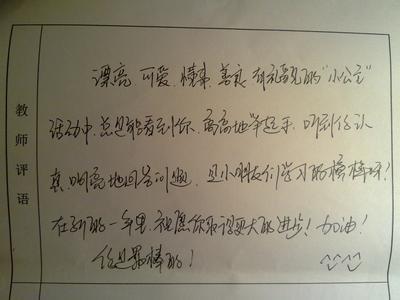 教师评语
漂亮、可爱、懂事、善良、有礼貌的“小公主”
活动中，总是能看到你，高高地举起手，听到你认
真、响亮地回答问题，是小朋友们学习的榜样呀！
在新的一年里，祝愿你取得更大的进步！加油！
你是最棒的！